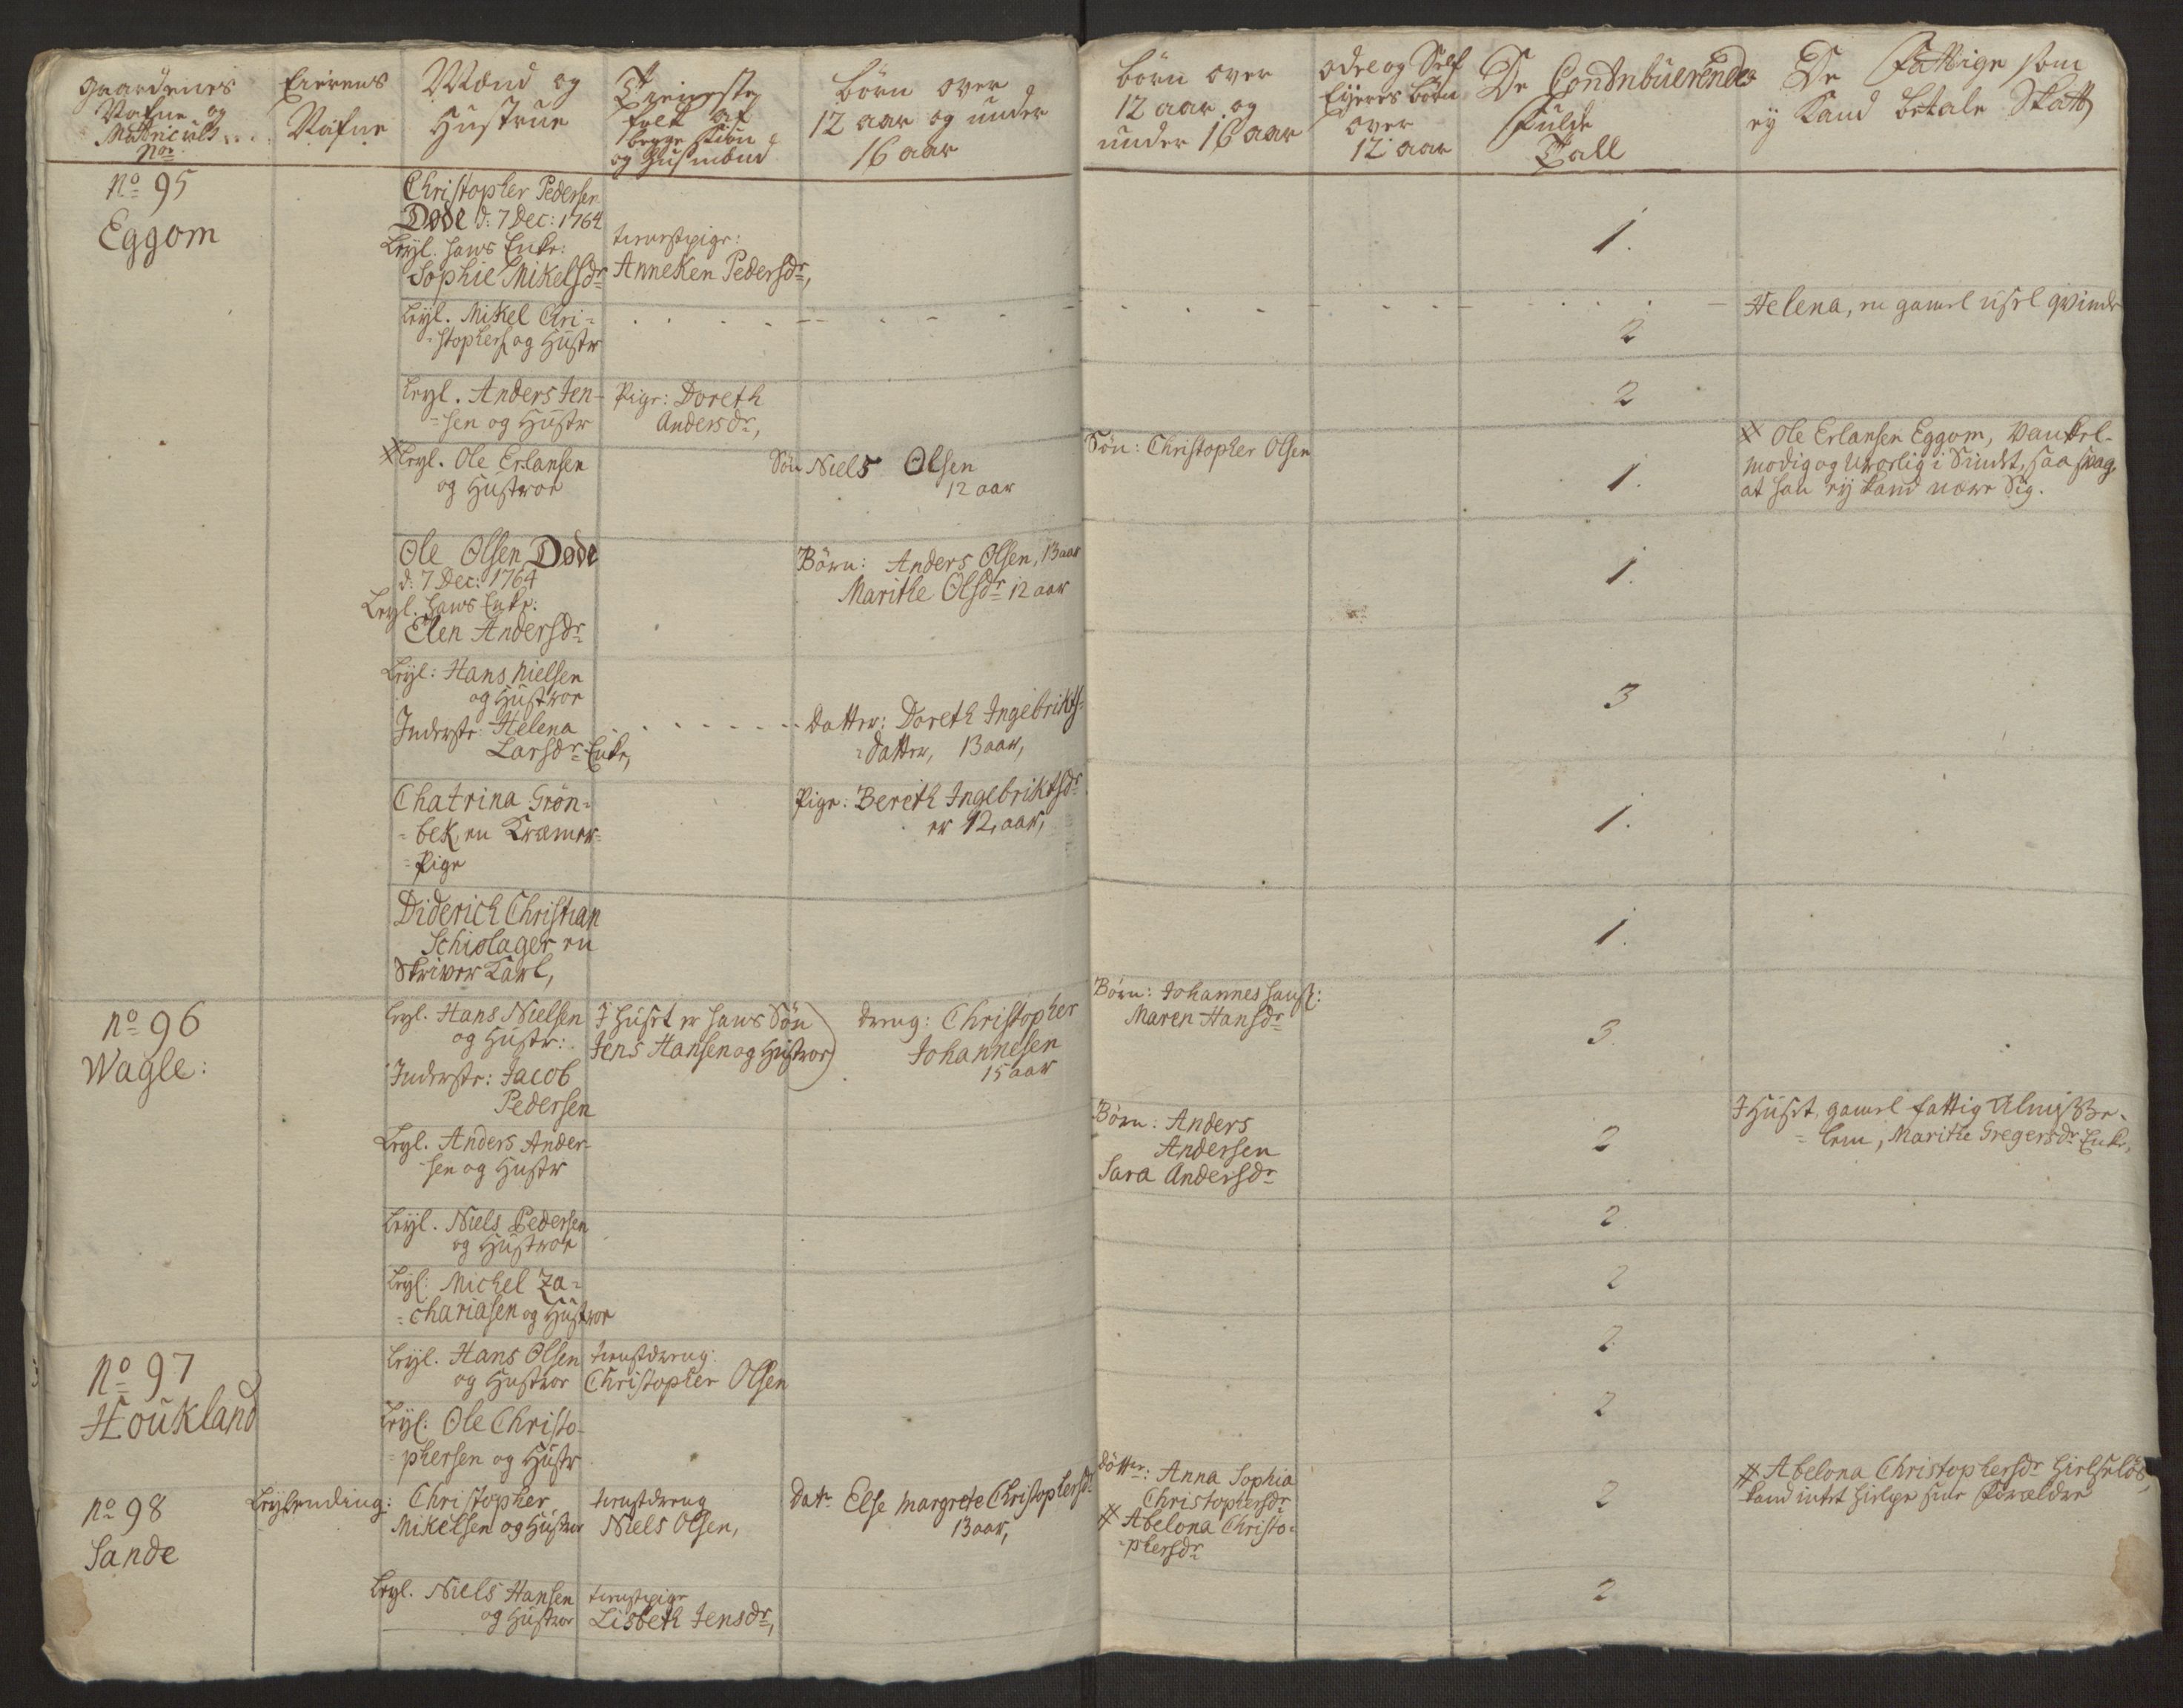 Gaardenes
Nafne og
Matriculs
Nor.
Eierens
Nafne
Mænd og
Hustrue
Tieneste
folk af
begge Kiön
og Husmænd
börn over
12 aar og under
16 aar
börn over
12 aar og
under 16 aar
odel og Self
Eÿeres börn
over
12 aar
De Contribuerendes
Fulde
Tall
De Fattige som
eÿ Kand betale Skatt
No 95
Eggom
Christopher Pedersen
Døde d: 7 Dec: 1764
Leÿl. hans Enke:
Sophie Mikelsdr
tieneste pige:
Anneken Pedersdr,
1.
Leÿl. Mikel Chri-
=stophers og Hustr
2
Helena, en gamel usel qvinde
Leÿl. Anders Jen-
=sen og Hustr
Pige: Doreth
Andersdr,
2
# Leÿl. Ole Erlansen
og Hustroe
Sön Niels Olsen
12 aar
Sön: Christopher Olsen
1.
# Ole Erlansen Eggom, Vankel-
modig og Urolig i Sindet, saa svag,
at han eÿ kand nære Sig.
Ole Olsen Døde
d: 7 Dec: 1764
Leÿl. hans Enke:
Elen Andersdr
Börn: Anders Olsen, 13 aar
Marithe Olsdr 12 aar
1.
Leÿl: Hans Nielsen
og Hustroe
Inderste: Helena
Larsdr Enke,
Datter: Doreth Ingebrikts-
=datter, 13 aar,
3
Chatrina Grön-
=bek, en Kræmer-
=Pige
Pige: Bereth Ingebriktsdr
er 12, aar,
1.
Diderich Christian
Schiolager en
Skriver Karl,
1.
No 96
Wagle:
Leÿl. Hans Nielsen
og Hustr:
Inderste: Jacob
Pedersen
I Huset er hans Sön
Jens Hansen og Hustroe
dreng: Christopher
Johannesen
15 aar
Börn: Johannes Hans:
Maren Hansdr
3.
Leÿl. Anders Ander-
sen og Hustr
Börn: Anders
Andersen
Sara Andersdr
2
I Huset, gamel fattig Almisse-
=lem, Marithe Gregersdr Enke,
Leÿl. Niels Pedersen
og Hustroe
2.
Leÿl: Michel Za-
=chariasen og Hustroe
2
No 97
Houkland
Leÿl. Hans Olsen
og Hustroe
tienestdreng:
Christopher Olsen
2
Leÿl: Ole Christo-
=phersen og Hustr
2
No 98
Sande
Leÿlending:
Christopher
Mikelsen og Hustroe
tienestdreng
Niels Olsen,
Datr Else Margrete Christophersdr
13 aar,
Döttr: Anna Sophia
Christophersdr
# Abelona Christo-
=phersdr
2
# Abelona Christophersdr hielpelös,
kand intet hielpe sine Forældre
Leÿl. Niels Hansen
og Hustroe
tienestpige
Lisbeth Jensdr,
2